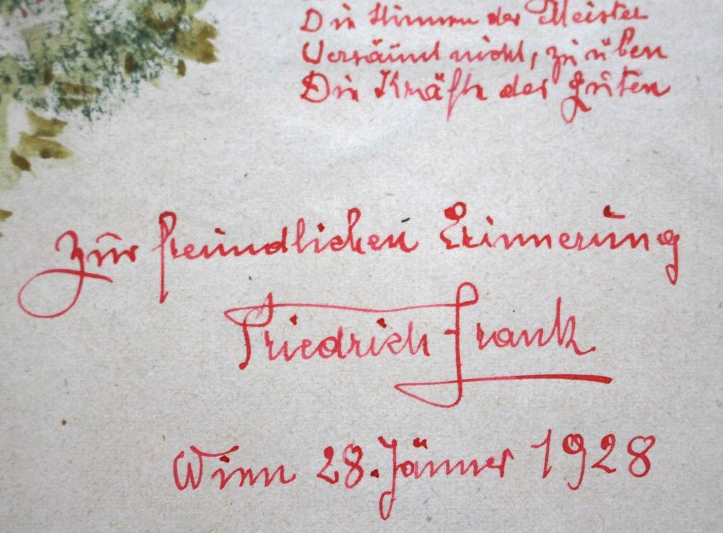 Die Stimmen der Meister
Versäumt nicht, zu üben
Die Kräfte des Guten
Zur freundlichen Erinnerung
Friedrich Frank
Wien 28. Jänner 1928